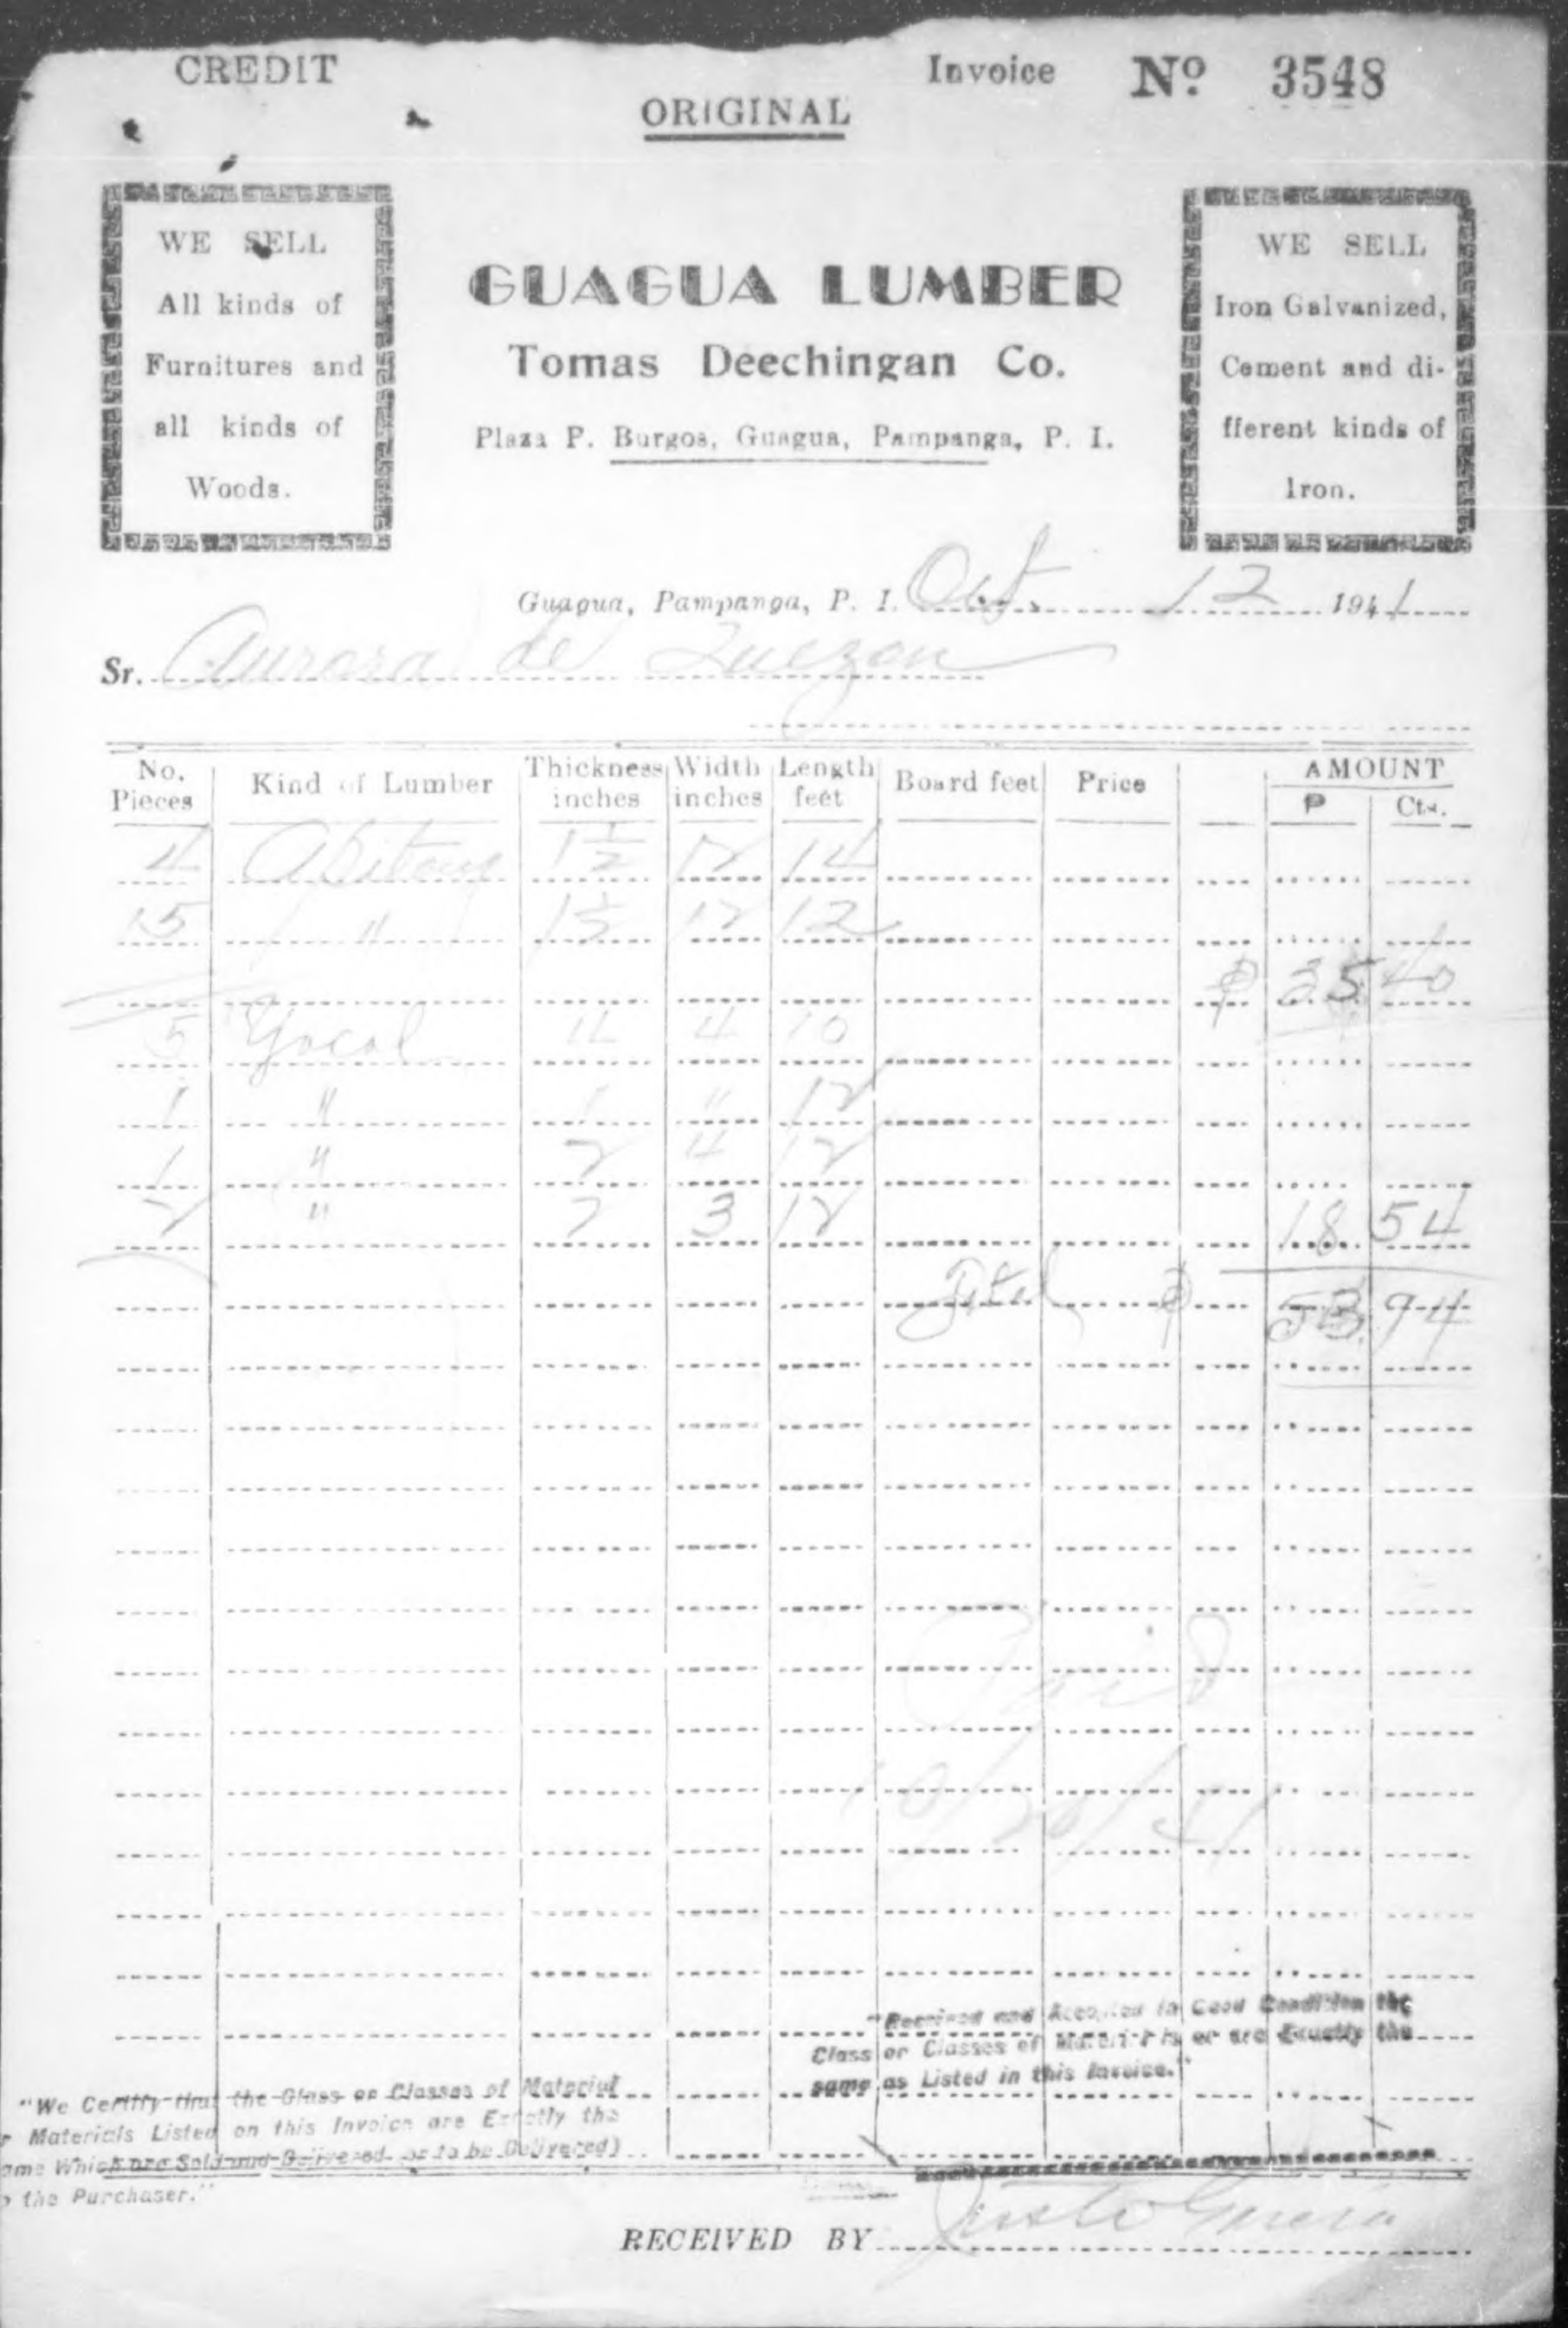 CREDIT
Invoice Nº 3548
ORIGINAL
WE SELL
All kinds of
Furnitures and
all kinds of
Woods.
GUAGUA LUMBER
Tomas Deechingan Co.
Plaza P. Burgos, Guagua, Pampanga, P. I.
WE SELL
Iron Galvanized,
Cement and di-
fferent kinds of
Iron.
Guagua, Pampanga, P. I. Oct. 12 1941
Sr. Aurora de Quezon
No. Pieces Kind of Lumber Thickness inches Width inches Length feet Board feet Price AMOUNT
P Cts.
4 1 1/2 12 14
15 " 1 1/2 12 12
₱ 35 40
5 Yacal 4 4 10
1 " " " 12
1 " 2 4 12
2 " 2 3 12 18 54
Total ₱ 53 94
Paid
10/20/41
"Received and Accepted in Good Condition the
Class or Classes of Materials or are Exactly the
same as Listed in this Invoice."
"We Certify that the Class or Classes of Material
r Materials Listed on this Invoice are Exactly the
ame Which are Sold and Delivered or to be Delivered)
o the Purchaser."
RECEIVED BY Justo